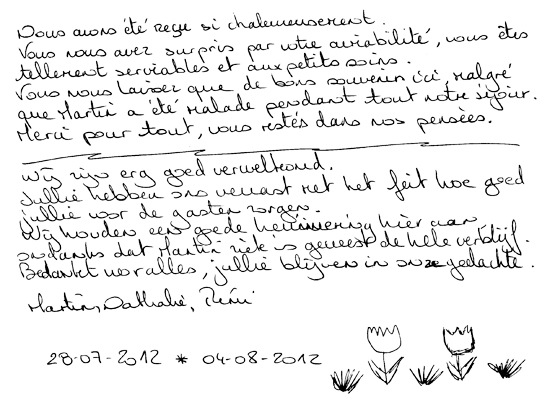 Nous avons été reçu si chaleureusement.
Vous nous avez surpris par votre amabilité, vous êtes
tellement serviables et aux petits soins.
Vous nous laissez que de bons souvenirs ici, malgré
que Martin a été malade pendant tout notre séjour.
Merci pour tout, vous restés dans nos pensées.
Wij zijn erg goed verwelkomd.
Jullie hebben ons verrast met het feit hoe goed
jullie voor de gasten zorgen.
Wij houden een goede herinnering hier aan
ondanks dat Martin ziek is geweest de hele verblijf.
Bedankt voor alles, jullie blijven in onze gedachte.
Martin, Nathalie, Rémi
28-07-2012 * 04-08-2012